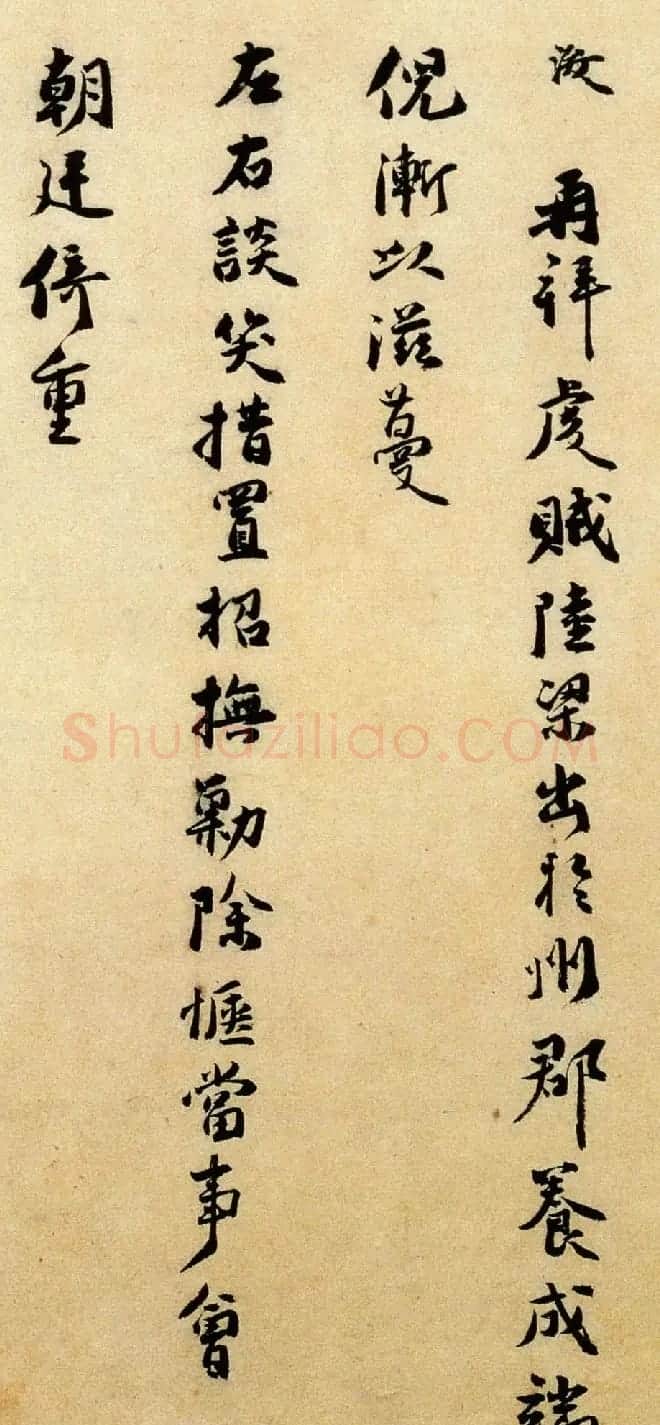 再拜虔賊陸梁出於州郡養成端
倪漸以滋蔓
左右談笑措置招撫勦除愜當事會
朝廷倚重
Shufaziliao.COM